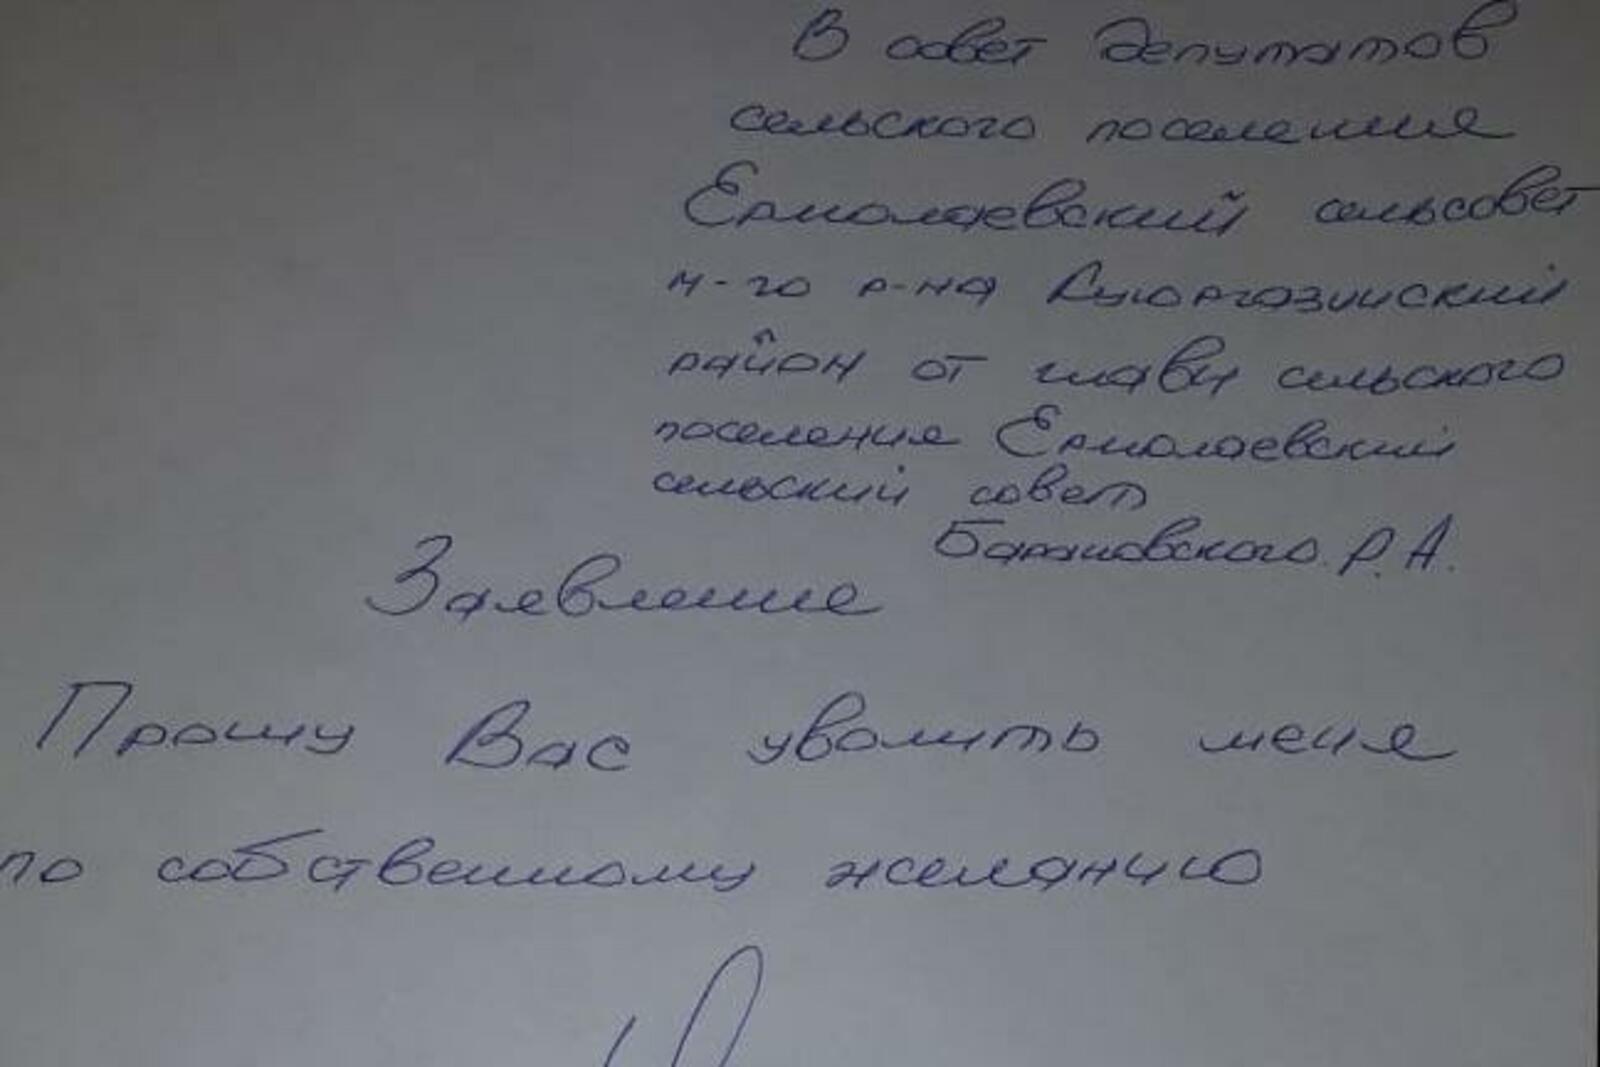 В совет депутатов
сельского поселения
Ермолаевский сельсовет
м-го р-на Куюргазинский
район от главы сельского
поселения Ермолаевский
сельский совет
Р. А.
Заявление
Прошу Вас уволить меня
по собственному желанию